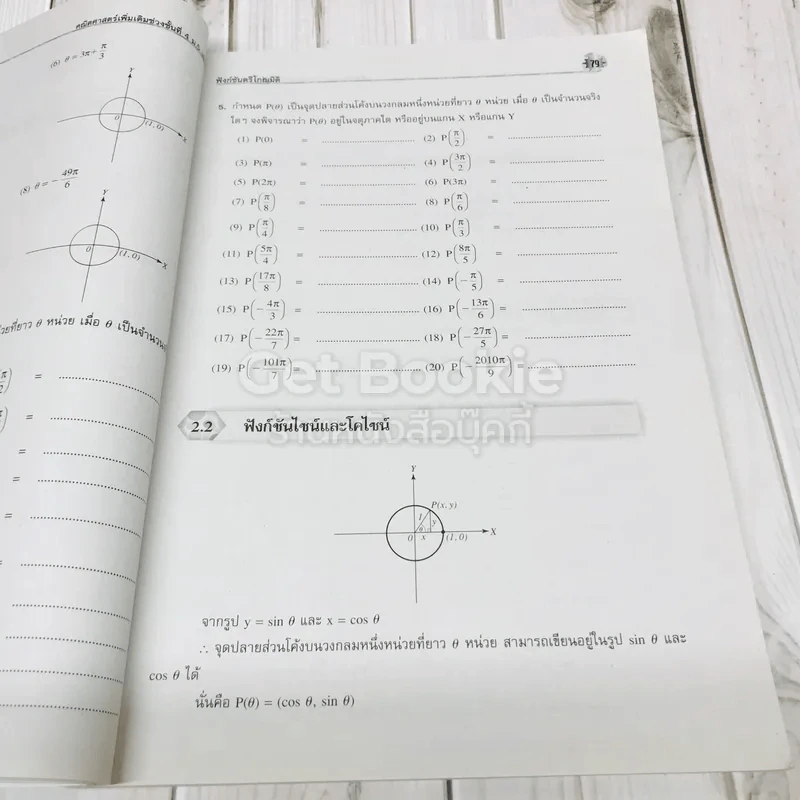 คณิตศาสตร์เพิ่มเติมช่วงชั้นที่ 4
(6) θ = 3π + π/3
Y
0 (1, 0) X
(8) θ = − 49π/6
Y
0 (1, 0) X
θ หน่วย เมื่อ θ เป็นจำนวน
= ................
= ................
= ................
= ................
= ................
= ................
ฟังก์ชันตรีโกณมิติ 79
5. กำหนด P(θ) เป็นจุดปลายส่วนโค้งบนวงกลมหนึ่งหน่วยที่ยาว θ หน่วย เมื่อ θ เป็นจำนวนจริง
ใดๆ จงพิจารณาว่า P(θ) อยู่ในจตุภาคใด หรืออยู่บนแกน X หรือแกน Y
(1) P(0) = ................ (2) P(π/2) = ................
(3) P(π) = ................ (4) P(3π/2) = ................
(5) P(2π) = ................ (6) P(3π) = ................
(7) P(π/8) = ................ (8) P(π/6) = ................
(9) P(π/4) = ................ (10) P(π/3) = ................
(11) P(5π/4) = ................ (12) P(8π/5) = ................
(13) P(17π/8) = ................ (14) P(−π/5) = ................
(15) P(−4π/3) = ................ (16) P(−13π/6) = ................
(17) P(−22π/7) = ................ (18) P(−27π/5) = ................
(19) P(−101π/7) = ................ (20) P(−2010π/9) = ................
Get Bookie
ร้านหนังสือบุ๊คกี้
2.2 ฟังก์ชันไซน์และโคไซน์
Y
P(x, y)
1 y
θ
0 x (1, 0) X
จากรูป y = sin θ และ x = cos θ
∴ จุดปลายส่วนโค้งบนวงกลมหนึ่งหน่วยที่ยาว θ หน่วย สามารถเขียนอยู่ในรูป sin θ และ
cos θ ได้
นั่นคือ P(θ) = (cos θ, sin θ)